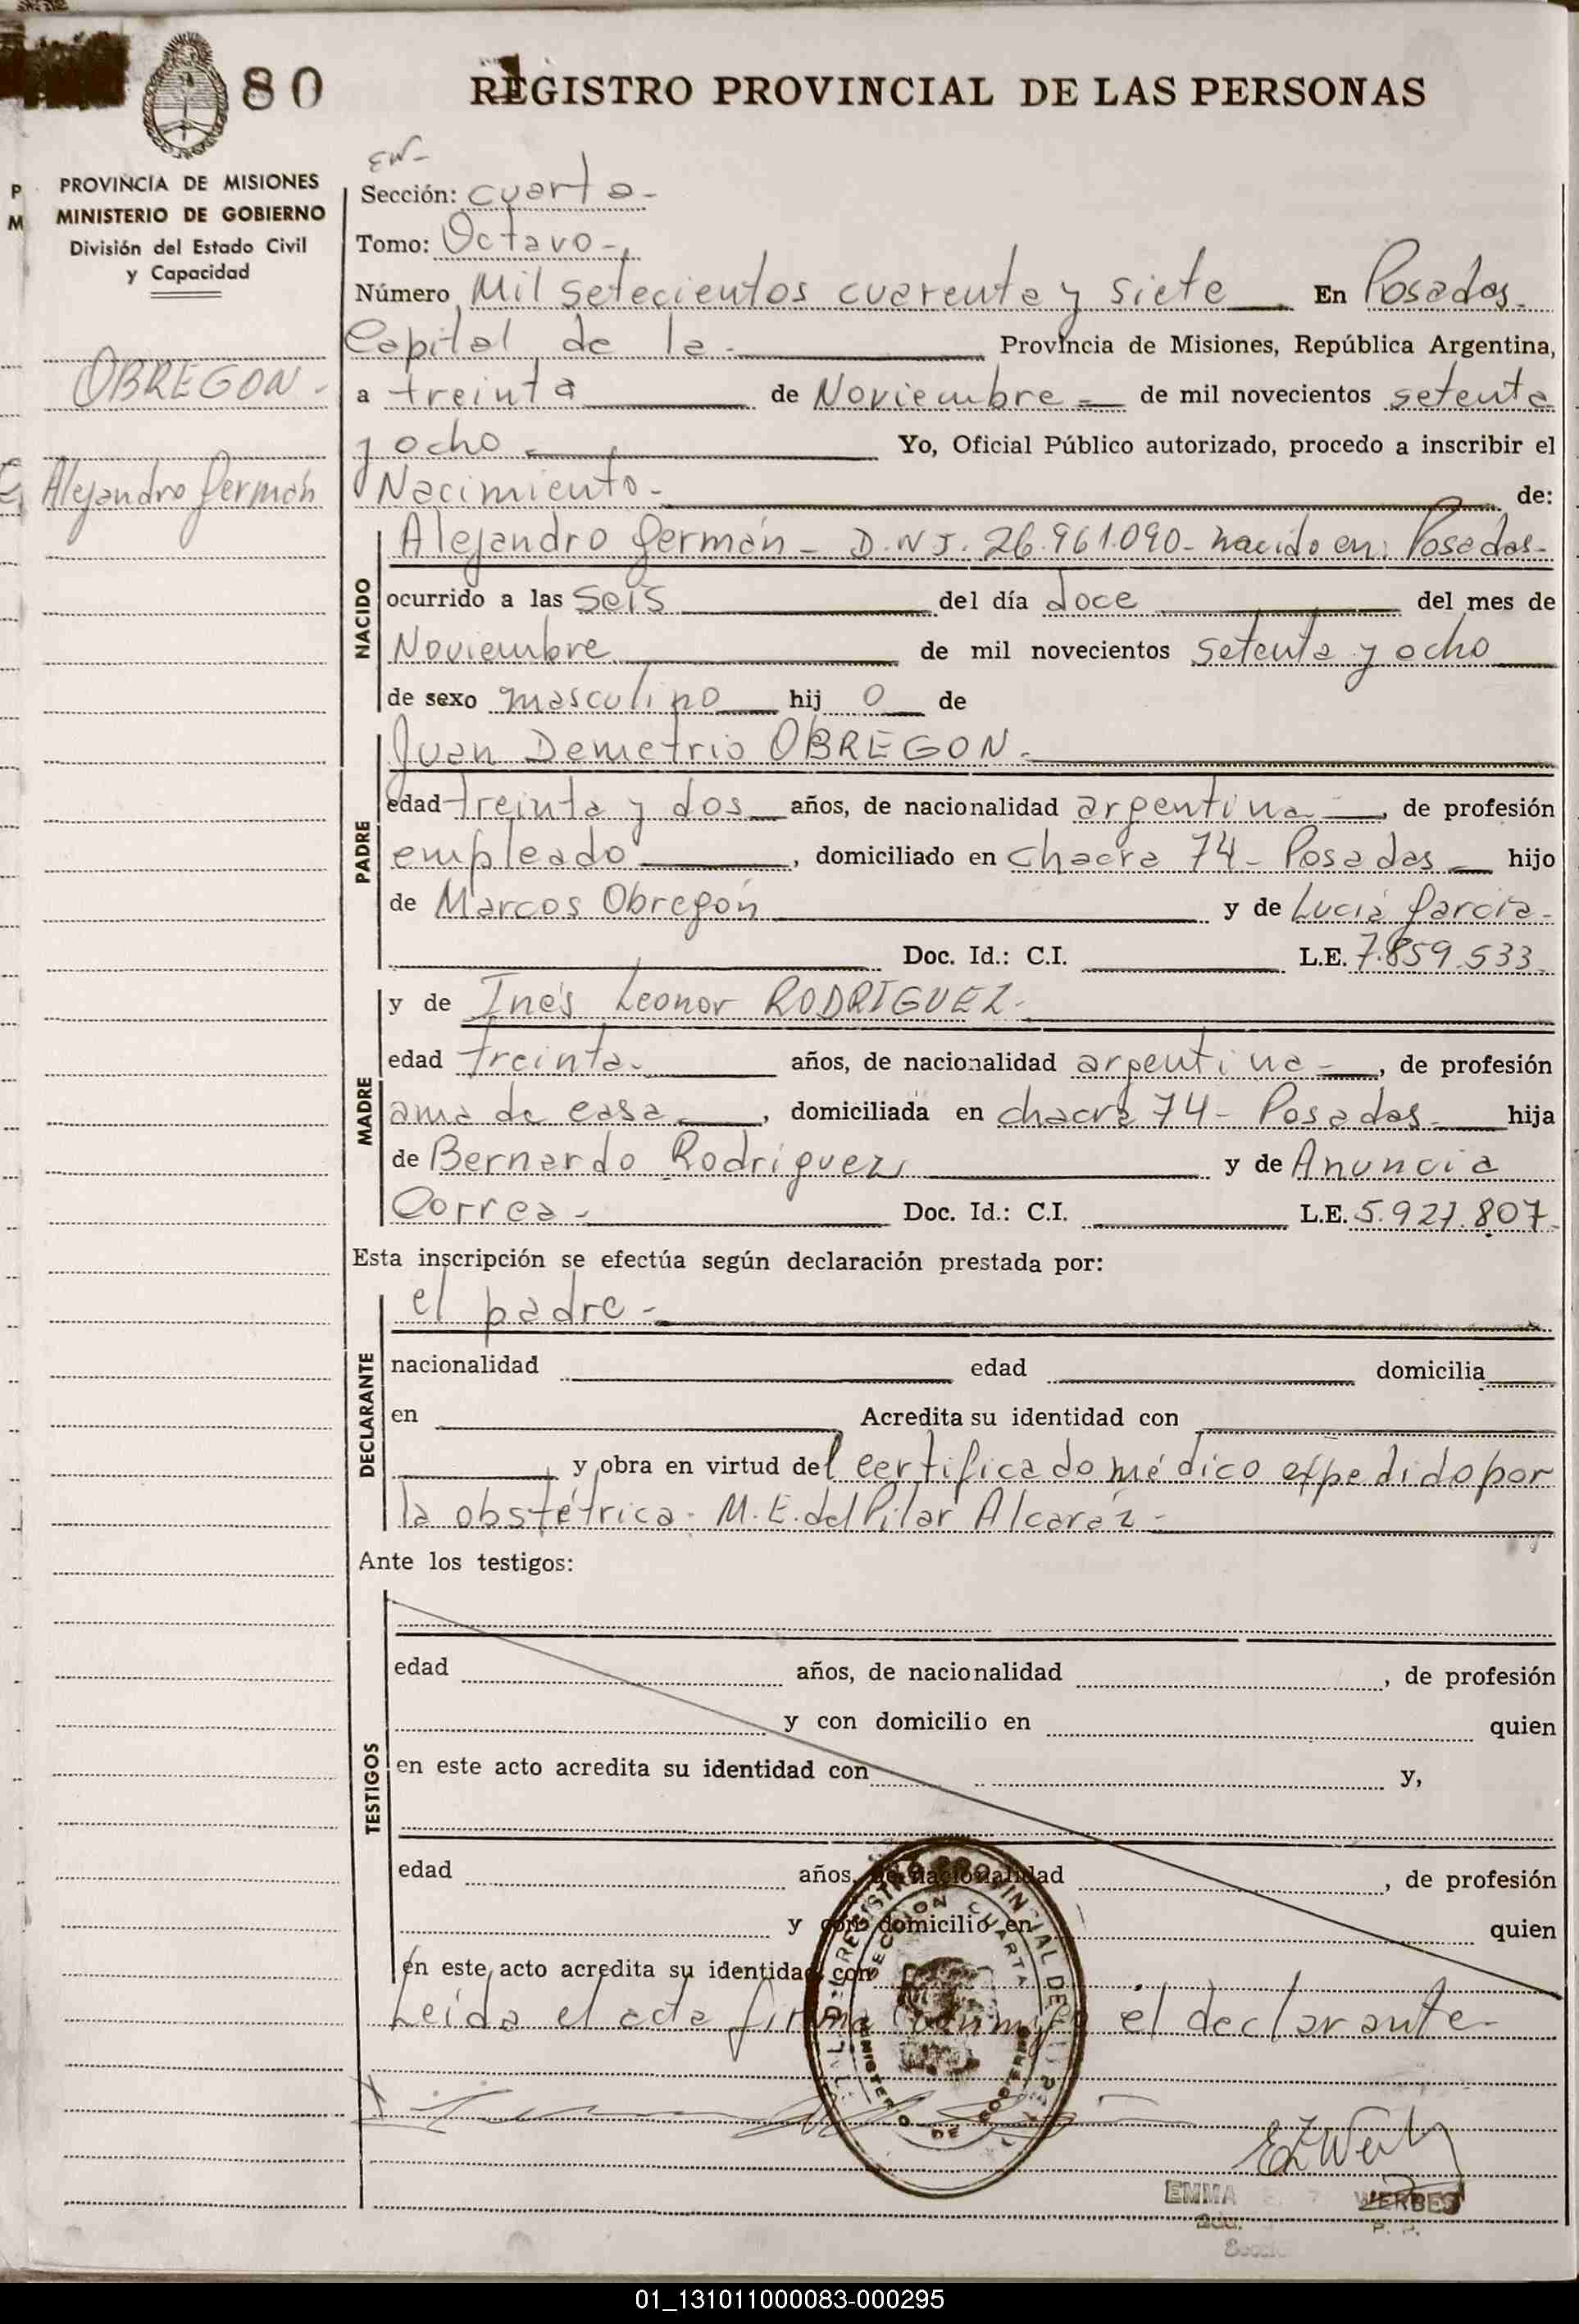 80
REGISTRO PROVINCIAL DE LAS PERSONAS
PROVINCIA DE MISIONES
MINISTERIO DE GOBIERNO
División del Estado Civil
y Capacidad
OBREGON -
Alejandro Germán
Sección: cuarta -
Tomo: Octavo -
Número Mil setecientos cuarenta y siete En Posadas -
Capital de la - Provincia de Misiones, República Argentina,
a treinta de Noviembre - de mil novecientos setenta
y ocho Yo, Oficial Público autorizado, procedo a inscribir el
Nacimiento - de:
NACIDO
Alejandro Germán - D.N.I. 26.961.090 - nacido en: Posadas -
ocurrido a las seis del día doce del mes de
Noviembre de mil novecientos setenta y ocho
de sexo masculino hij o de
PADRE
Juan Demetrio OBREGON -
edad treinta y dos años, de nacionalidad argentina -, de profesión
empleado, domiciliado en chacra 74 - Posadas hijo
de Marcos Obregón y de Lucía García -
Doc. Id.: C.I. L.E. 7.859.533
MADRE
y de Inés Leonor RODRIGUEZ -
edad treinta - años, de nacionalidad argentina -, de profesión
ama de casa, domiciliada en chacra 74 - Posadas - hija
de Bernardo Rodríguez y de Anuncia
Correa - Doc. Id.: C.I. L.E. 5.927.807
Esta inscripción se efectúa según declaración prestada por:
DECLARANTE
el padre -
nacionalidad edad domicilia
en Acredita su identidad con
y obra en virtud del certificado médico expedido por
la obstétrica - M. E. del Pilar Alcaráz -
Ante los testigos:
TESTIGOS
edad años, de nacionalidad , de profesión
y con domicilio en quien
en este acto acredita su identidad con y,
edad años, de nacionalidad , de profesión
y con domicilio en quien
en este acto acredita su identidad con
Leída el acta firma conmigo el declarante -
SECCION CUARTA
MINISTERIO DE GOBIERNO
EMMA WERBES
01_131011000083-000295